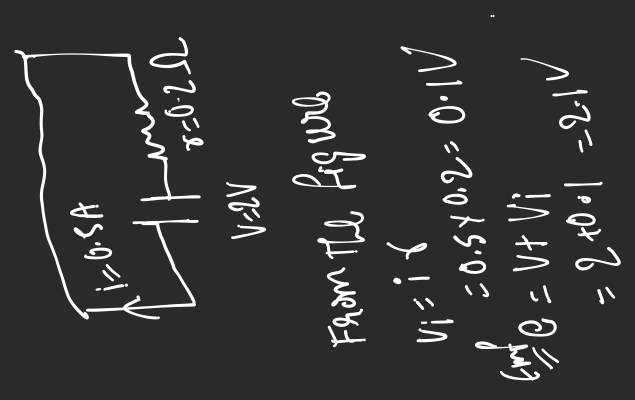 r=0.2Ω
i=0.5A
V=2V
From the figure
Vi = i r
= 0.5 × 0.2 = 0.1V
emf e = V+ Vi
= 2 +0.1 = 2.1V